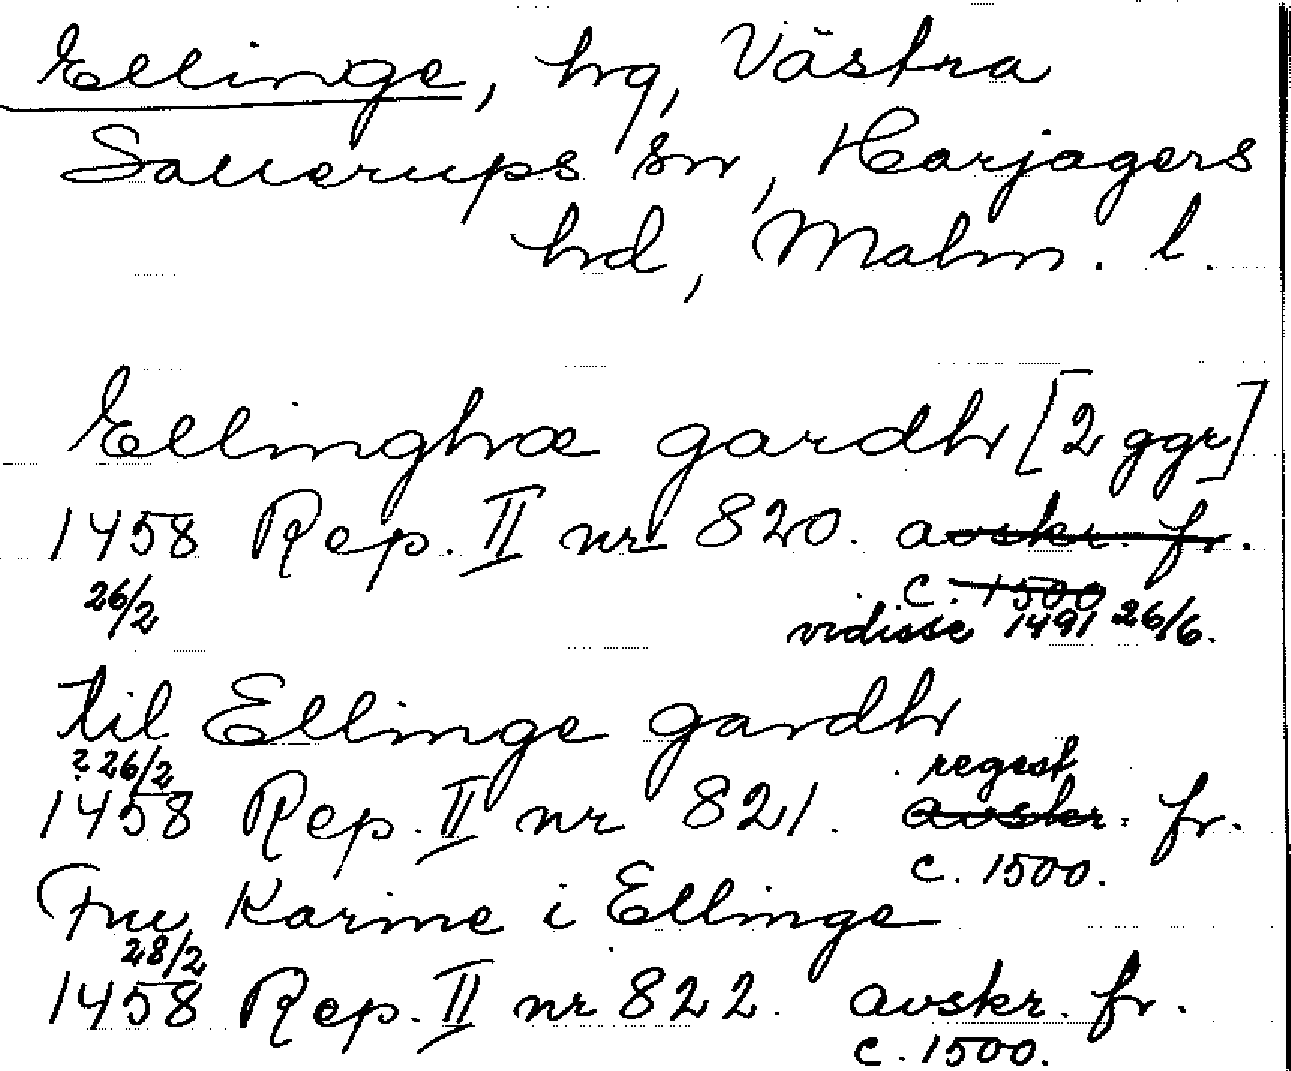 Ellinge, hg, Västra
Sallerups sn, Harjagers
hd, Malm. l.
Ellinghæ gardhr [2 ggr]
1458 Rep. II nr 820. avskr. fr.
26/2 c. 1500
vidisse 1491 26/6.
til Ellinge gardhr
? 26/2 regest
1458 Rep. II nr 821. avskr. fr.
c. 1500.
Fru Karine i Ellinge
28/2
1458 Rep. II nr 822. avskr. fr.
c. 1500.